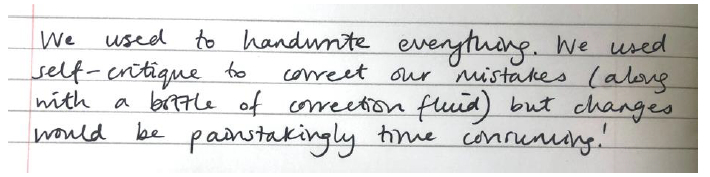 We used to handwrite everything. We used
self-critique to correct our mistakes (along
with a bottle of correction fluid) but changes
would be painstakingly time consuming!